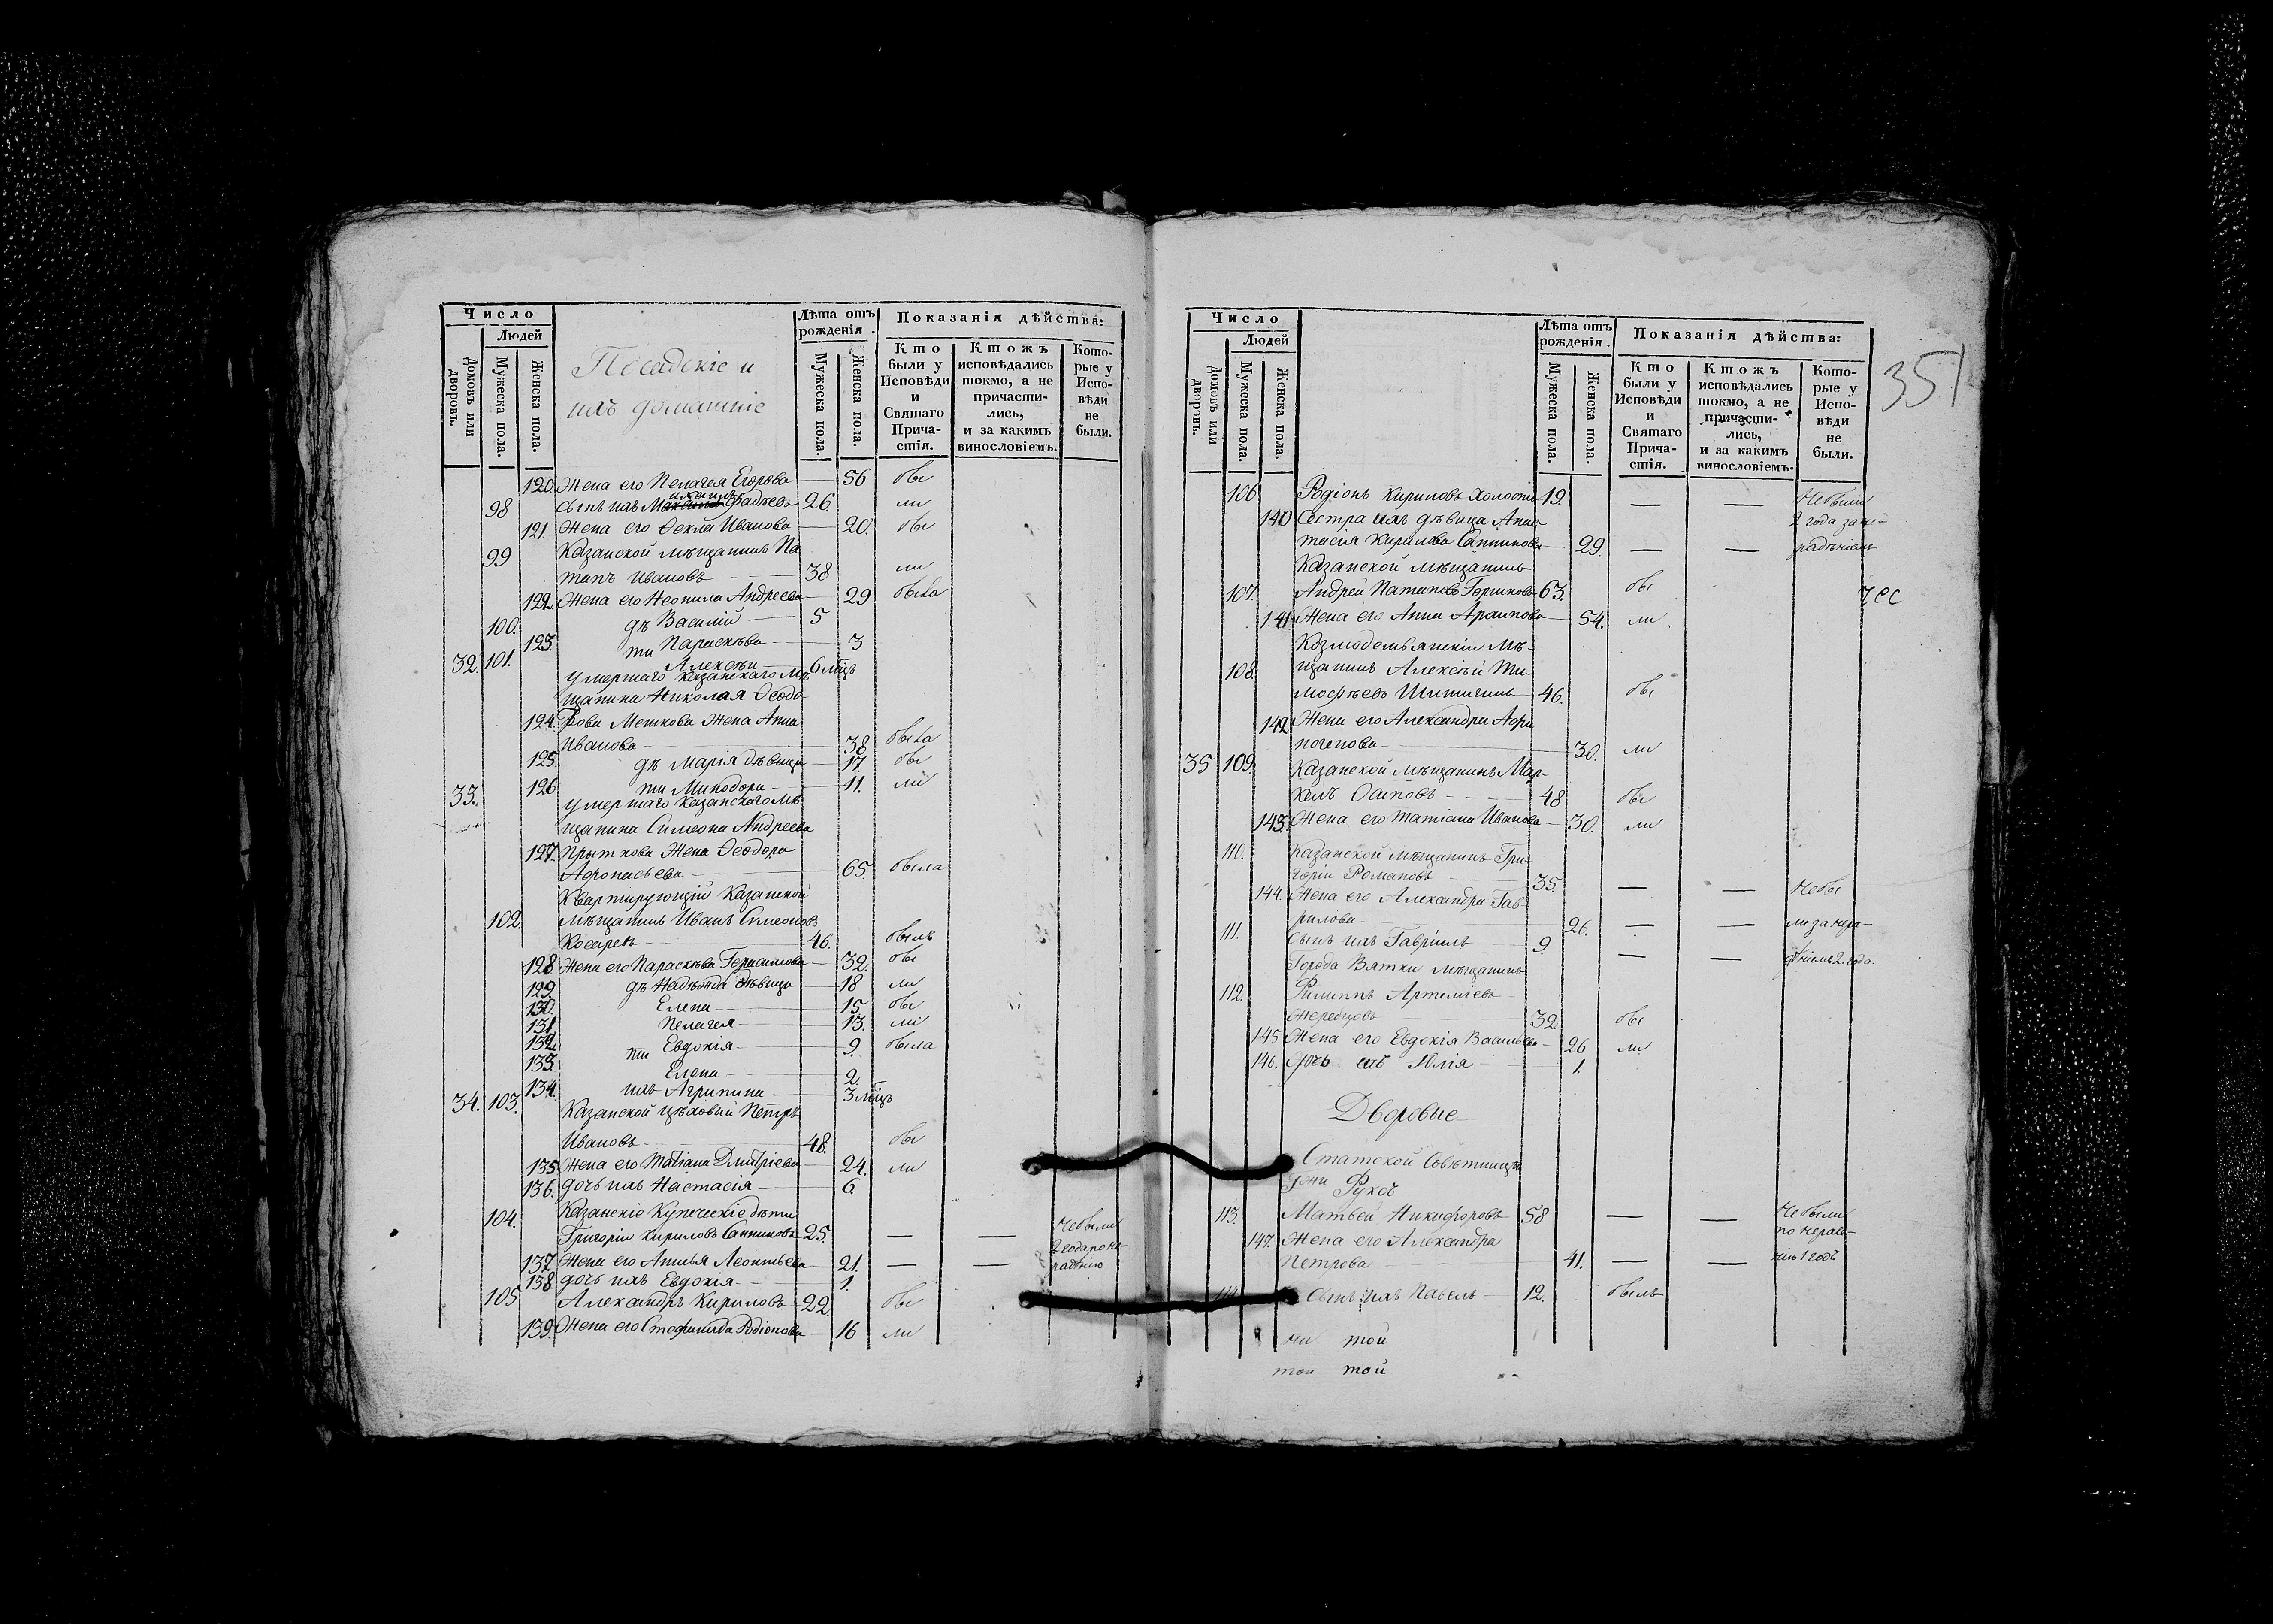 Число
Людей
Домовъ или дворовъ.
Мужеска пола.
Женска пола.
Посадскіе и
ихъ домашніе
Лѣта отъ рожденія.
Мужеска пола.
Женска пола.
Показанія дѣйства:
Кто были у Исповѣди и Святаго Причастія.
Ктожъ исповѣдались токмо, а не причастились, и за какимъ винословіемъ.
Которые у Исповѣди не были.
120. Жена его Пелагея Егорова — 56 бы
98 Сынъ ихъ Фадѣевъ 26. ли
121. Жена его Ѳекла Иванова — 20. бы
99 Казанской мѣщанинъ По
тапъ Ивановъ — 38 ли
122. Жена его Неонила Андреева — 29 была
100. дѣ Василій — 5
123. ти Параскева — 3
32. 101. Алексѣй — 6 мцъ
умершаго Казанскаго Мѣ
щанина Николая Ѳеодо
124. рова Мешкова Жена Анна
Иванова — 38 была
125. дѣ Марія дѣвица — 17 бы
126 ти Минодора — 11. ли
33. умершаго Казанскаго Мѣ
щанина Симеона Андреева
127. Прыткова Жена Ѳеодора
Афонасьева — 65. была
Квартирующій Казанской
102. Мѣщанинъ Иванъ Симеоновъ
Косаревъ — 46. былъ
128 Жена его Параскева Герасимова — 32. бы
129 дѣ Надежда дѣвица — 18 ли
130. Елена — 15. бы
131. Пелагея — 13. ли
132. ти Евдокія — 9. была
133. Елена — 2.
134. ихъ Агрипина — 3 мцъ
34. 103. Казанской цѣховый Петръ
Ивановъ — 48. бы
135. Жена его Татіана Дмитріева — 24. ли
136. дочь ихъ Настасія — 6
104. Казанскіе Купеческіе дѣти
Григорій Кириловъ Санниковъ 25. — — Небыли
2 года по не-
137. Жена его Анна Леонтьева — 21. — — радѣнію
138 дочь ихъ Евдокія — 1.
105 Александръ Кириловъ — 22 бы
139. Жена его Стефанида Родіонова — 16 ли
Число
Людей
Домовъ или дворовъ.
Мужеска пола.
Женска пола.
Лѣта отъ рожденія.
Мужеска пола.
Женска пола.
Показанія дѣйства:
Кто были у Исповѣди и Святаго Причастія.
Ктожъ исповѣдались токмо, а не причастились, и за какимъ винословіемъ.
Которые у Исповѣди не были.
351
106 Родіонъ Кириловъ холостъ 19. — — Небыли
140 Сестра ихъ дѣвица Анас 2 года за не-
тасія Кирилова Санникова — 29. — — радѣніемъ
Казанской Мѣщанинъ
107. Андрей Патаповъ Горшковъ 63. бы
141. Жена его Анна Архипова — 54. ли
Козмодемьянскій Мѣ-
108. щанинъ Алексѣй Ти-
мофѣевъ — 46. бы
142 Жена его Александра Афи
ногенова — 30. ли
35 109. Казанской мѣщанинъ Мар-
келъ Осиповъ — 48 бы
143. Жена его Татіана Иванова — 30. ли
110. Казанской мѣщанинъ Гри-
горій Романовъ — 35 — — Небы
144. Жена его Александра Гав-
рилова — 26. — — ли за нера-
111. Сынъ ихъ Гавріилъ — 9. — — дѣніемъ 2. года.
Города Вятки мѣщанинъ
112. Филиппъ Артеміевъ
Жеребцовъ — 32 бы
145 Жена его Евдокія Васильева — 26 ли
146. Дочь ихъ Юлія — 1.
Дворовые
Статской Совѣтницы
Г-жи Фуксъ
113. Матвей Никифоровъ 58 — — Небыли
по нераде-
147. Жена его Александра
Петрова — 41. — — нію 1 годъ
114. Сынъ ихъ Павелъ — 12. былъ
той
той той